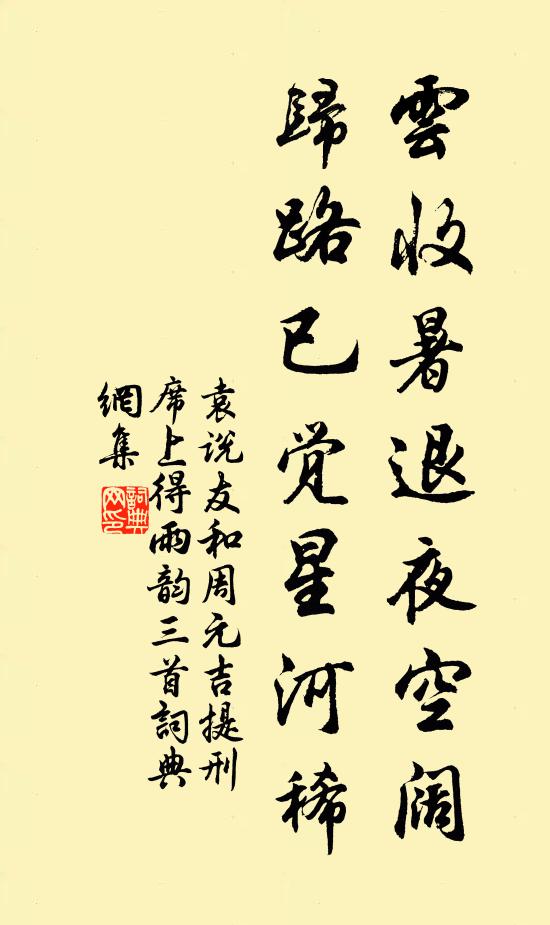 雲收暑退夜空阔
歸路已觉星河稀
袁说友和周元吉提刑
席上得雨韵三首詞典
網集
詞典網印